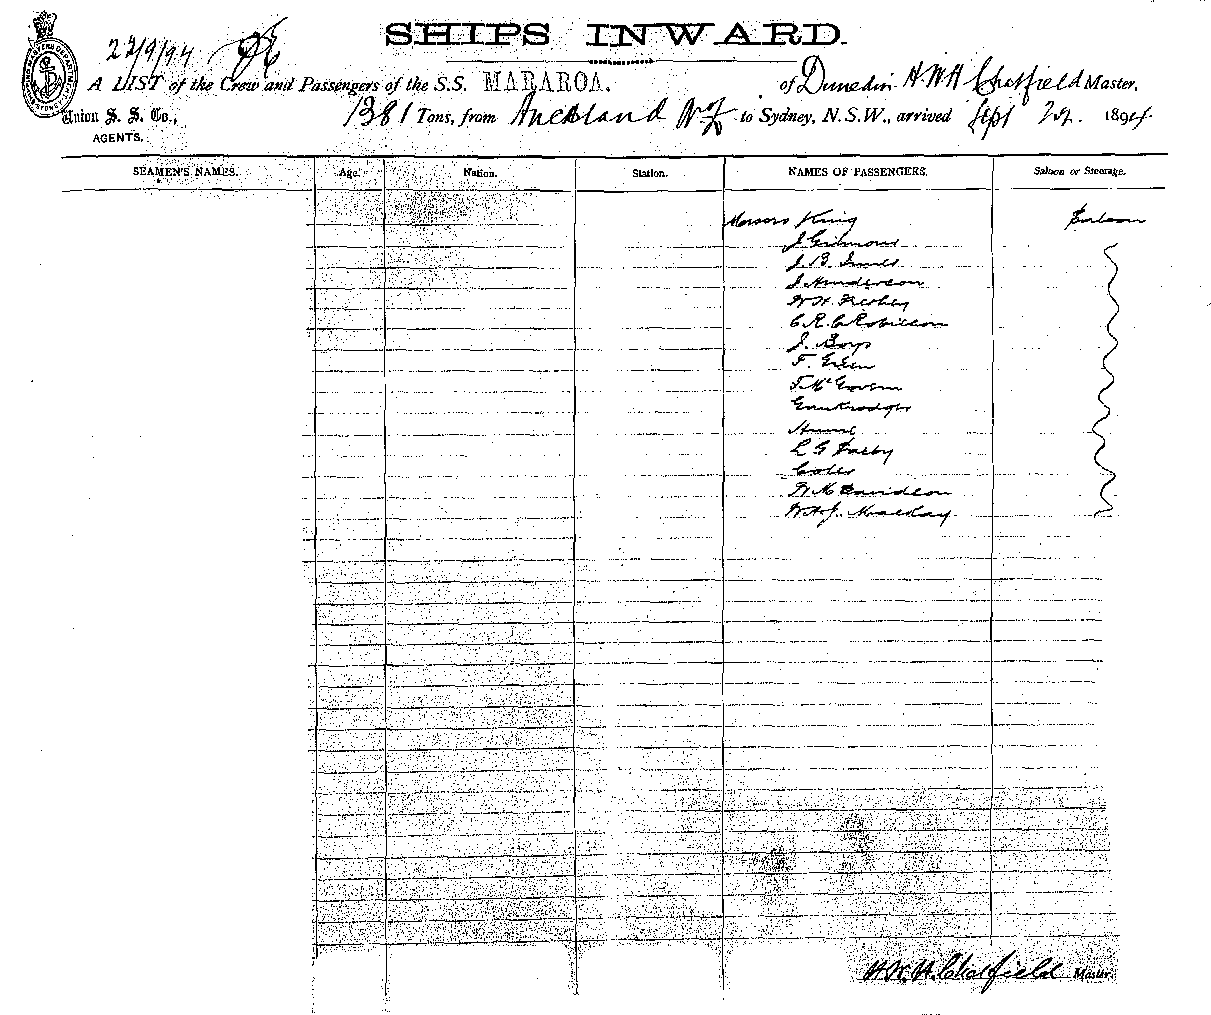 SHIPS INWARD.
22/9/94
A LIST of the Crew and Passengers of the S.S. MARAROA. of Dunedin H.W.H. Chatfield Master,
Union S. S. Co., 1381 Tons, from Auckland to Sydney, N.S.W., arrived Sept 22. 1894.
AGENTS.
SEAMEN'S NAMES. Age. Nation. Station. NAMES OF PASSENGERS. Saloon or Steerage.
Messrs King Saloon
J Gilmour
J. B. Innes
J Henderson
W. H.
C. R. C Robinson
J. Boys
F. Green
T. McGovern
Hume
L G
Coles
W M Davidson
W. H. J. Mackay
H. W. H. Chatfield Master.